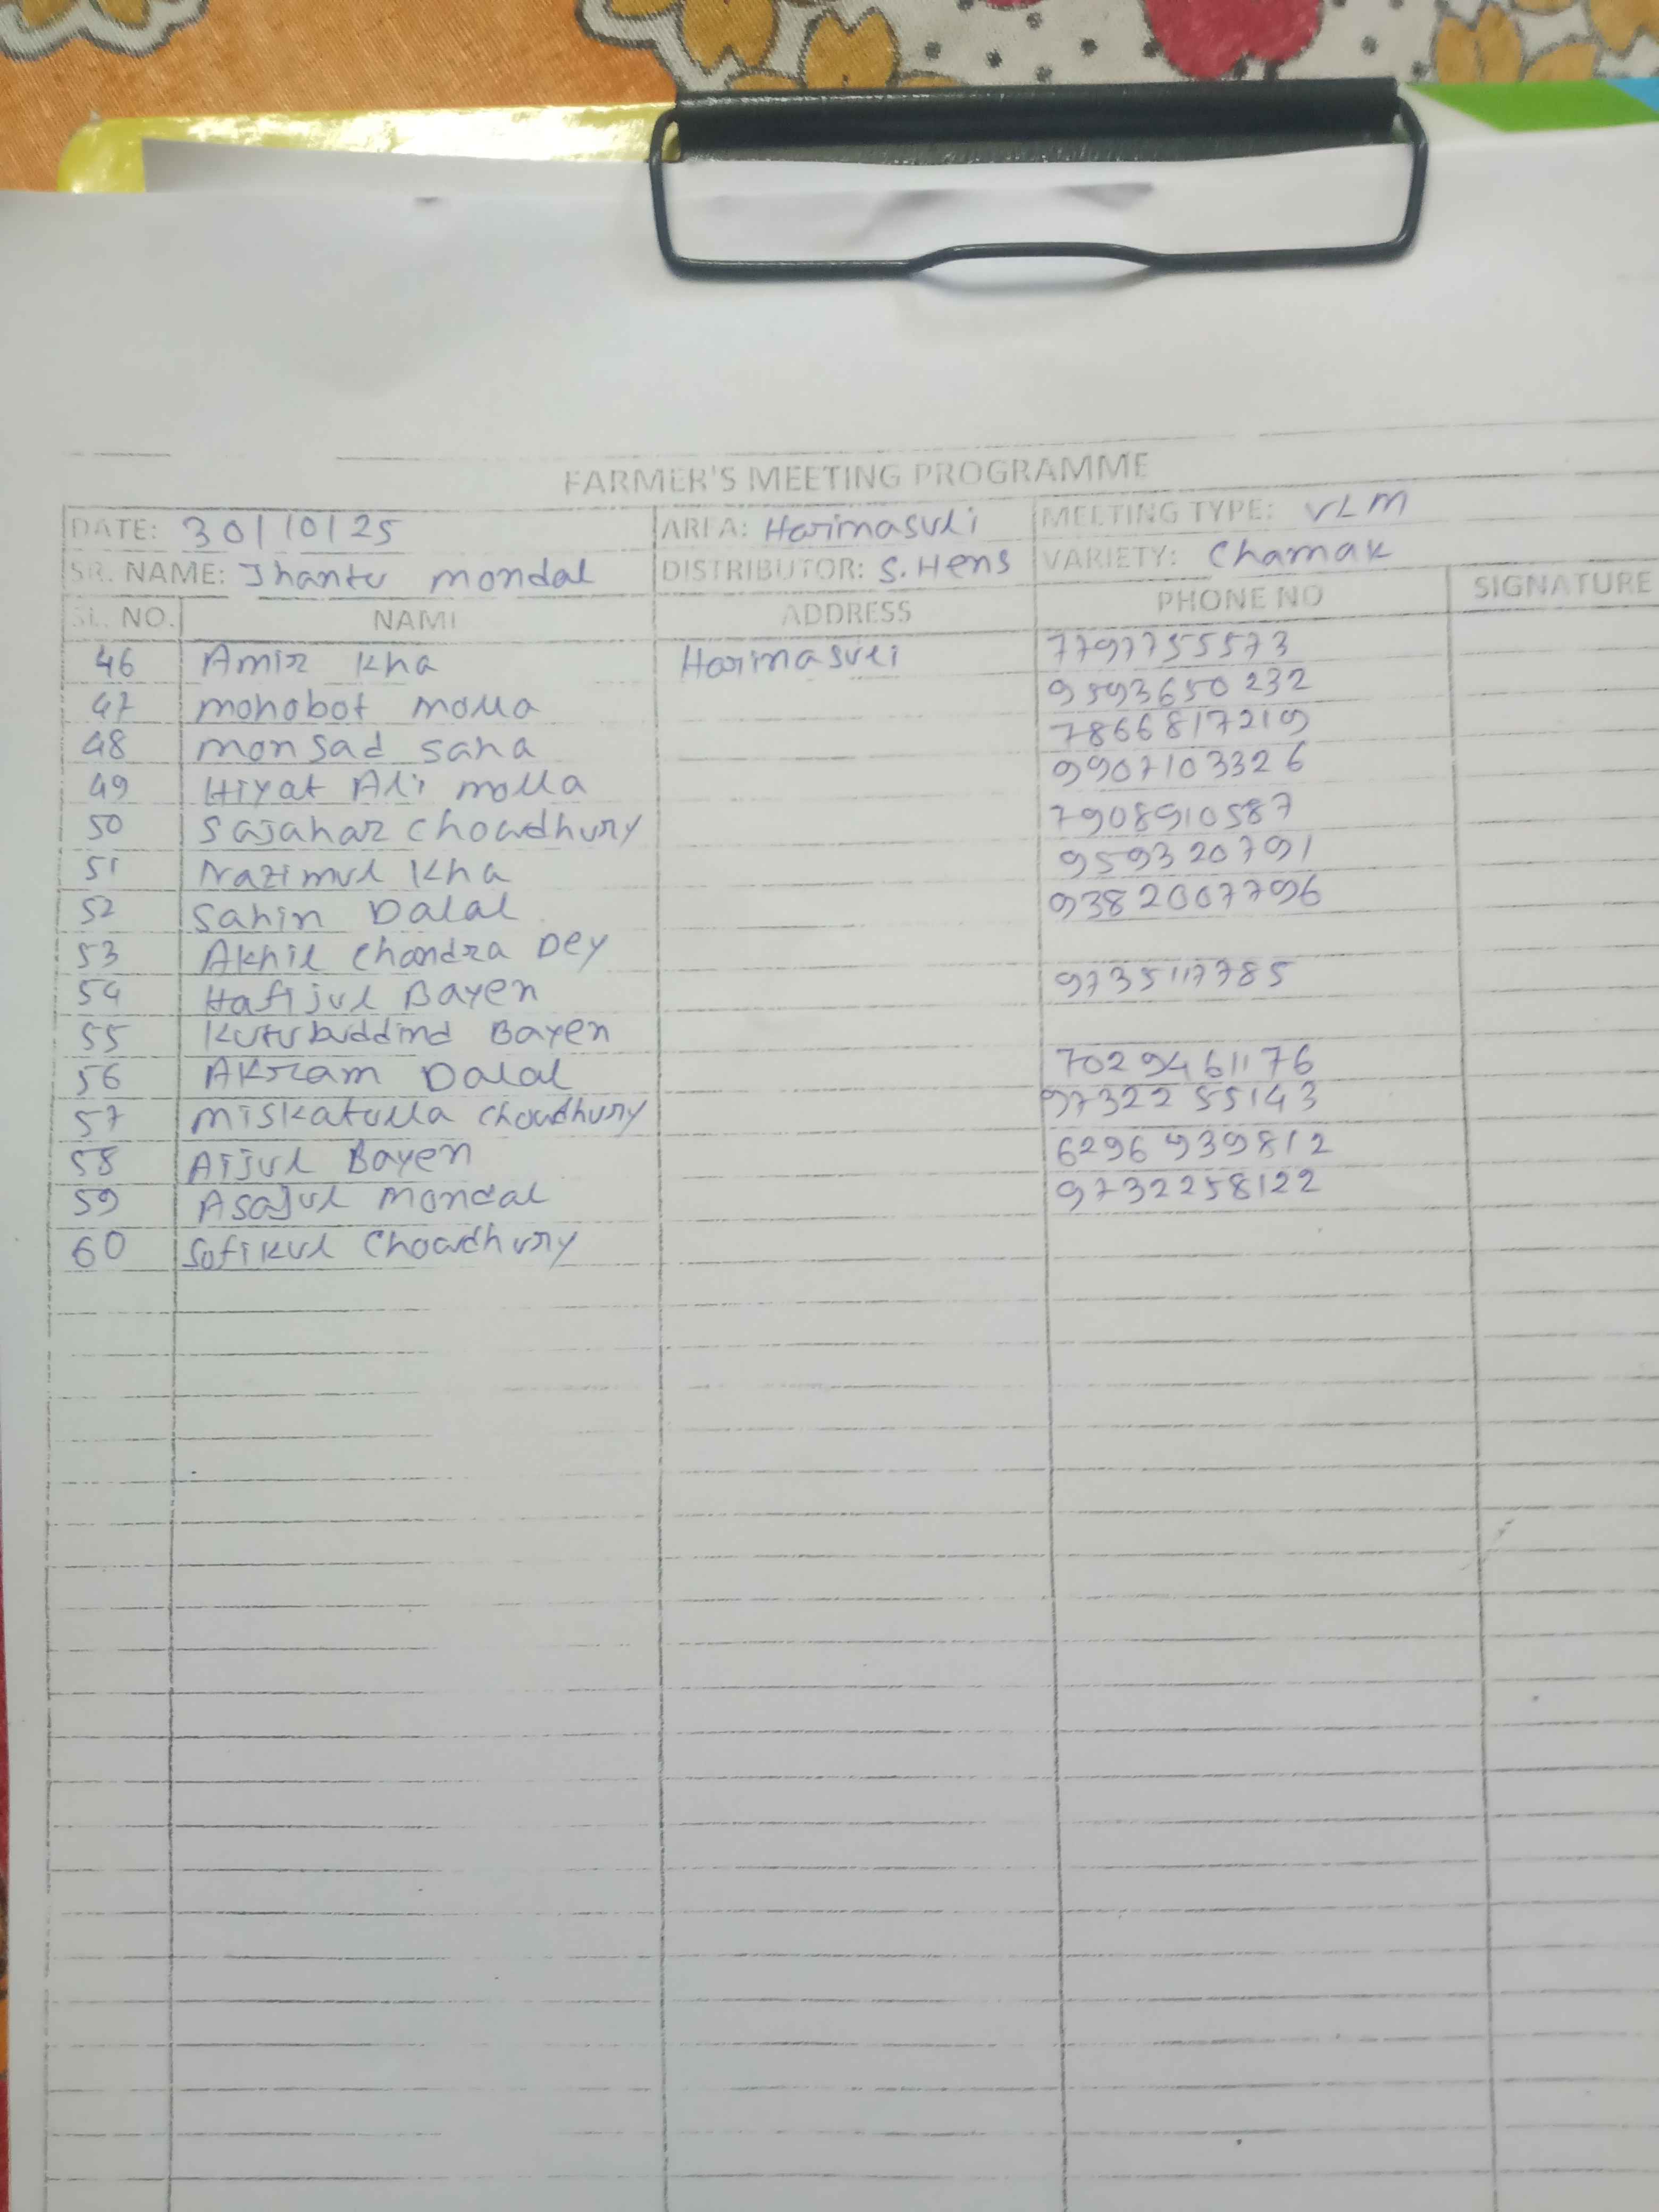 FARMER'S MEETING PROGRAMME
DATE: 30/10/25 AREA: Harinasuli MEETING TYPE: VLM
SR. NAME: Jhantu mondal DISTRIBUTOR: S. Hens VARIETY: Chamak
SL. NO. NAME ADDRESS PHONE NO SIGNATURE
46 Amir Kha Harinasuli 7797755573
47 mohobot molla 9593650232
48 monsad saha 7866817219
49 Hiyat Ali molla 9907103326
50 Sajahar Chowdhury 7908910587
51 Nazimul Kha 959320791
52 Sahin Dalal 9382007796
53 Akhil Chandra Dey
54 Hafijul Bayen 9735117785
55 Kutubuddind Bayen
56 Akram Dalal 7029461176
57 miskatulla Chowdhury 9732255143
58 Aijul Bayen 6296939812
59 Asajul Mondal 9732258122
60 Sofikul Chowdhury